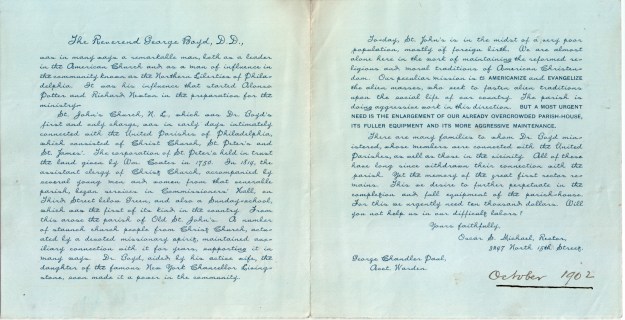 The Reverend George Boyd, D.D.,
was in many ways a remarkable man, both as a leader
in the American Church and as a man of influence in
the community known as the Northern Liberties of Phila-
delphia. It was his influence that started Alonzo
Potter and Richard Newton in the preparation for the
ministry.
St. John's Church, N. L., which was Dr. Boyd's
first and only charge, was in early days intimately
connected with the United Parishes of Philadelphia,
which consisted of Christ Church, St. Peter's and
St. James'. The corporation of St. Peter's held in trust
the land given by Wm. Coates in
In 1816, the
assistant clergy of Christ Church, accompanied by
several young men and women from that venerable
parish, began services in Commissioners' Hall, on
Third Street below Green, and also a Sunday-school,
which was the first of its kind in the country. From
this arose the parish of Old St. John's. A number
of staunch church people from Christ Church, actu-
ated by a devoted missionary spirit, maintained aux-
iliary connection with it for years, supporting it in
many ways. Dr. Boyd, aided by his active wife, the
daughter of the famous New York Chancellor Living-
stone, soon made it a power in the community.
To-day, St. John's is in the midst of a very poor
population, mostly of foreign birth. We are almost
alone here in the work of maintaining the reformed re-
ligious and moral traditions of American Christen-
dom. Our peculiar mission is to AMERICANIZE and EVANGELIZE
the alien masses, who seek to foster alien traditions
upon the social life of our country. The parish is
doing aggressive work in this direction. BUT A MOST URGENT
NEED IS THE ENLARGEMENT OF OUR ALREADY OVERCROWDED PARISH-HOUSE,
ITS FULLER EQUIPMENT AND ITS MORE AGGRESSIVE MAINTENANCE.
There are many families to whom Dr. Boyd min-
istered, whose members were connected with the United
Parishes, as well as those in the vicinity. All of these
have long since withdrawn their connection with the
parish. Yet the memory of the great first rector re-
mains. This we desire to further perpetuate in the
completion and full equipment of the parish-house.
For this we urgently need ten thousand dollars. Will
you not help us in our difficult labors?
Yours faithfully,
Oscar S. Michael, Rector,
North 15th Street.
George Chandler Paul,
Acct. Warden.
October 1902